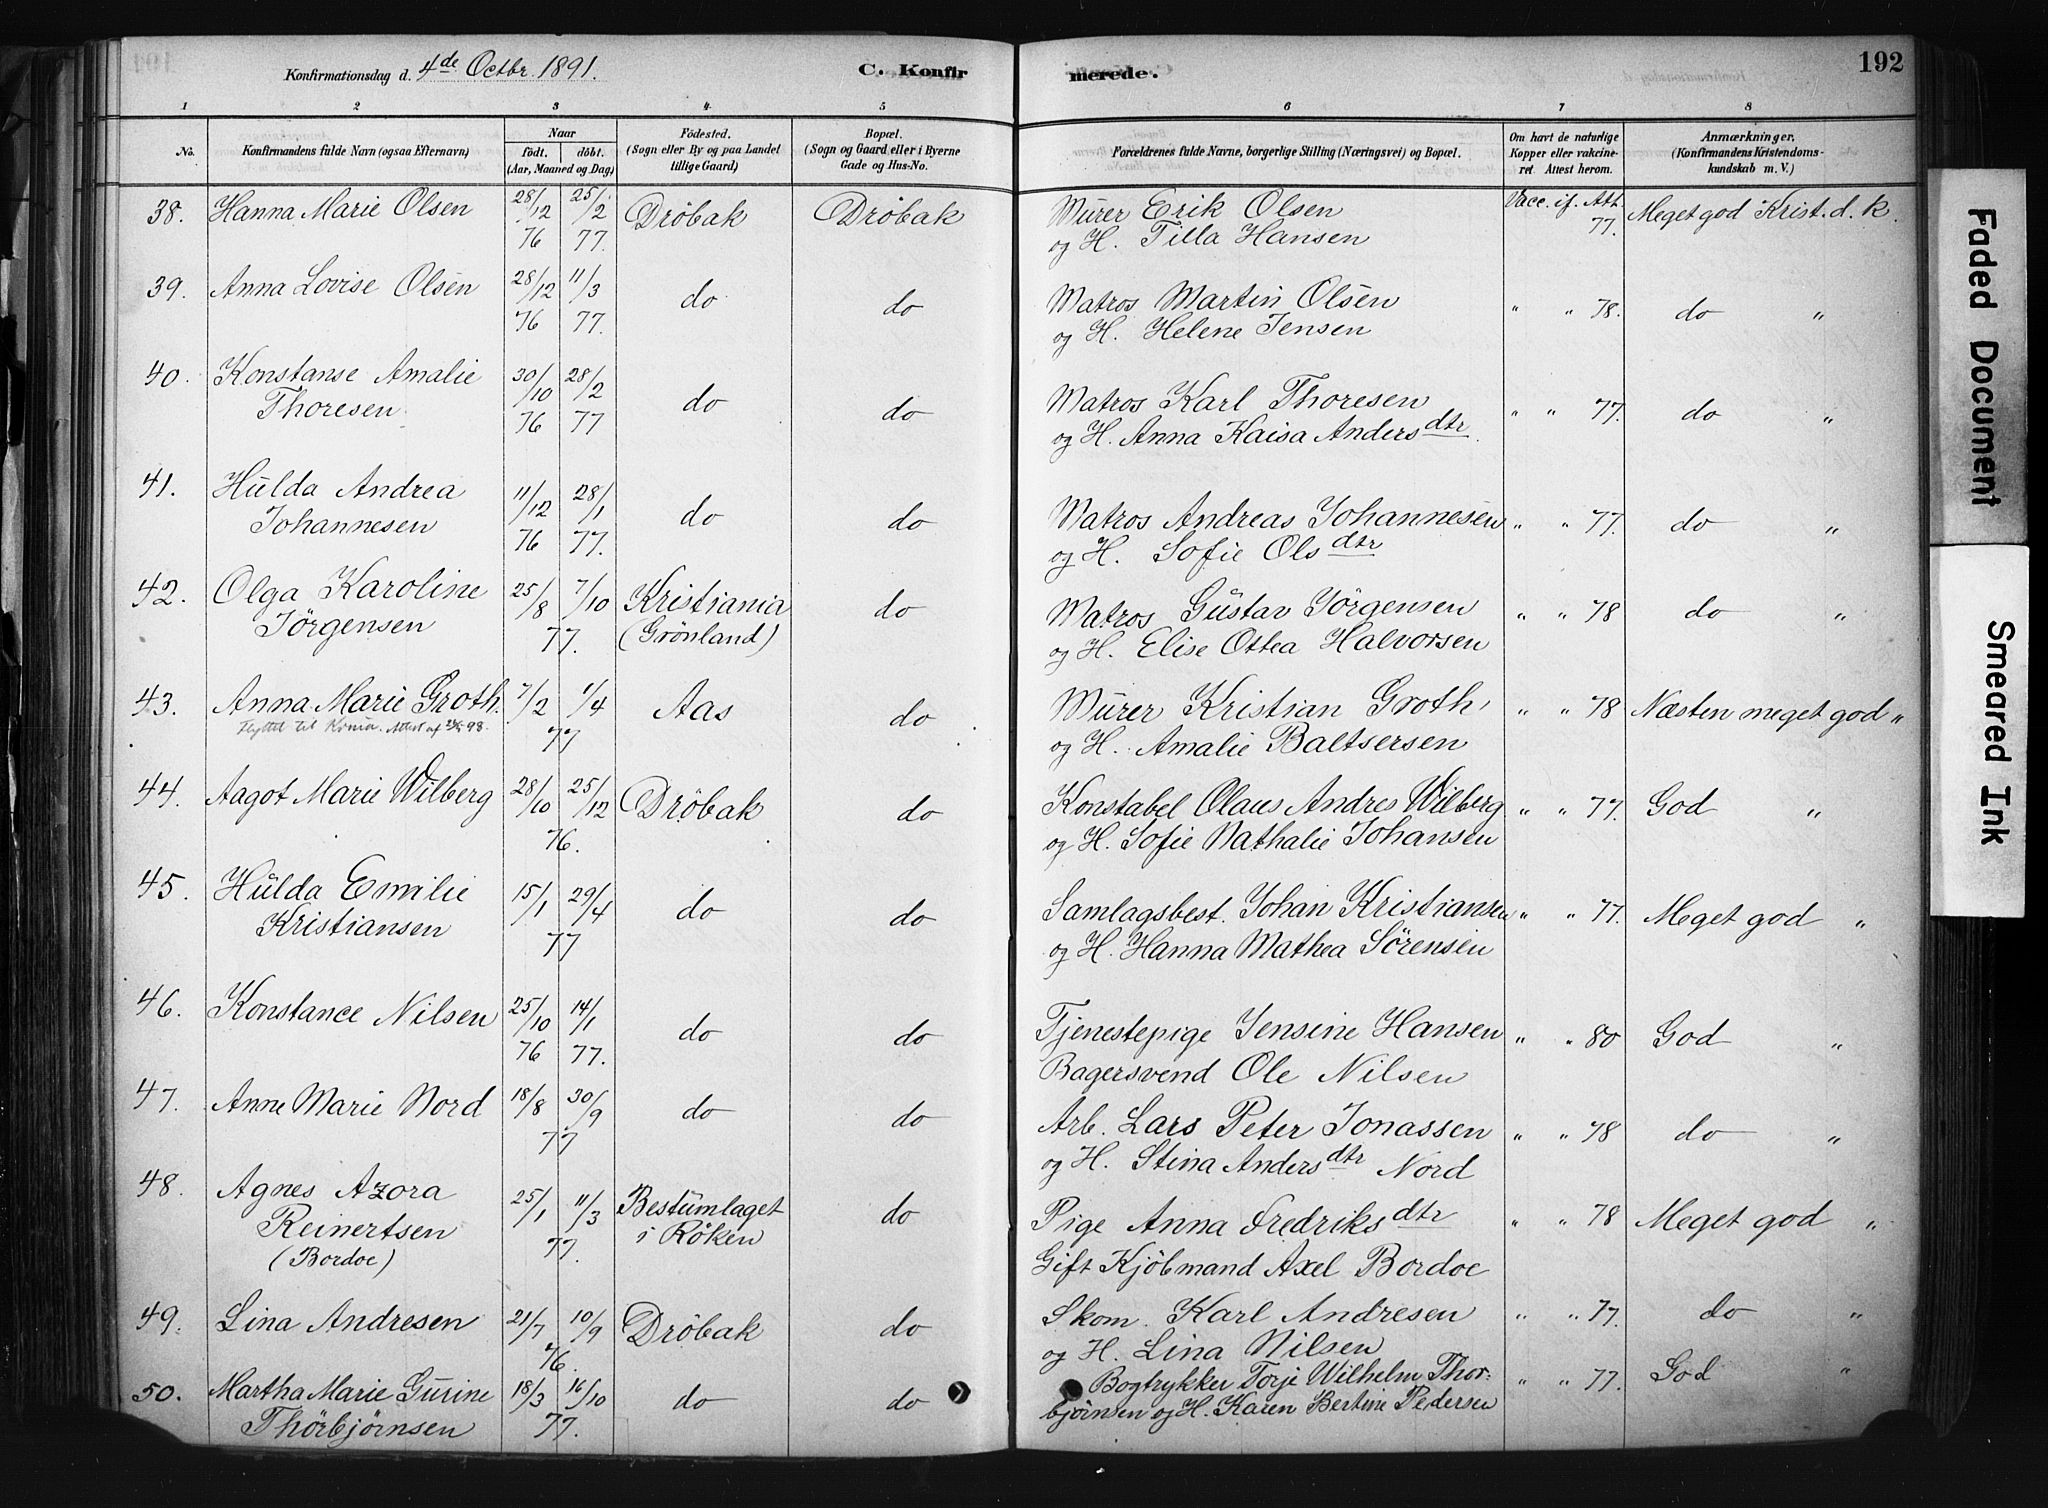 Konfirmationsdag d. 4de Octbr. 1891. C. Konfirmerede. 192
1 2 3 4 5 6 7 8
No. Konfirmandens fulde Navn (ogsaa Efternavn) Naar født. døbt. (Aar, Maaned og Dag) Fødested. (Sogn eller By og paa Landet tillige Gaard) Bopæl. (Sogn og Gaard, eller i Byerne Gade og Hus-No. Forældrenes fulde Navne, borgerlige Stilling (Næringsvei) og Bopæl. Om havt de naturlige Kopper eller vakcineret. Attest herom. Anmærkninger. (Konfirmandens Kristendomskundskab m. V.)
38. Hanna Marie Olsen 28/12 76 25/2 77. Dröbak Dröbak Murer Erik Olsen Vacc. if. Att. 77. Meget god Krist.d.k.
og H. Tilla Hansen
39. Anna Lovise Olsen 28/12 76 11/3 77. do do Matros Martin Olsen " " 78. do "
og H. Helene Jensen
40. Konstanse Amalie 30/10 76 28/2 77 do do Matros Karl Thoresen " " 77. do "
Thoresen og H. Anna Kaisa Andersdtr.
41. Hulda Andrea 11/12 76 28/1 77. do do Matros Andreas Johannesen " " 77. do "
Johannesen og H. Sofie Olsdtr
42. Olga Karoline 25/8 7/10 77. Kristiania do Matros Gustav Jörgensen " " 78 do "
Jörgensen (Grönland) og H. Elise Ottea Halvorsen
43. Anna Marie Groth. 7/2 1/4 77 Aas do Murer Kristian Groth, " " 78 Næsten meget god "
Flyttet til Kr̅nia. Attest af 98. og H. Amalie Baltsersen
44. Aagot Marie Wilberg 28/10 25/12 76. Dröbak do Konstabel Olaus Andres Wilberg " " 77. God "
og H. Sofie Nathalie Johansen
45. Hulda Emilie 15/1 29/4 77 do do Samlagsbest. Johan Kristiansen " " 77. Meget god "
Kristiansen og H. Hanna Mathea Sörensen
46. Konstance Nilsen 25/10 76 14/1 77. do do Tjenestepige Jensine Hansen " " 80 God "
Bagersvend Ole Nilsen
47. Anne Marie Nord 18/8 30/9 77 do do Arb. Lars Peter Jonassen " " 78 do "
og H. Stina Andersdtr Nord
48. Agnes Azora 25/1 11/3 77. Bestumlaget do Pige Anna Fredriksdtr " " 78 Meget god "
Reinertsen i Röken Gift Kjöbmand Axel Bordoe
(Bordoe)
49. Lina Andresen 21/7 10/9 76. Dröbak do Skom. Karl Andresen " " 77. do "
og H. Lina Nilsen
50. Martha Marie Gurine 18/3 16/10 77. do do Bogtrykker Torje Wilhelm Thor- " " 77. God "
Thorbjørnsen bjørnsen og H. Karen Bertine Pedersen
Faded Document
Smeared Ink